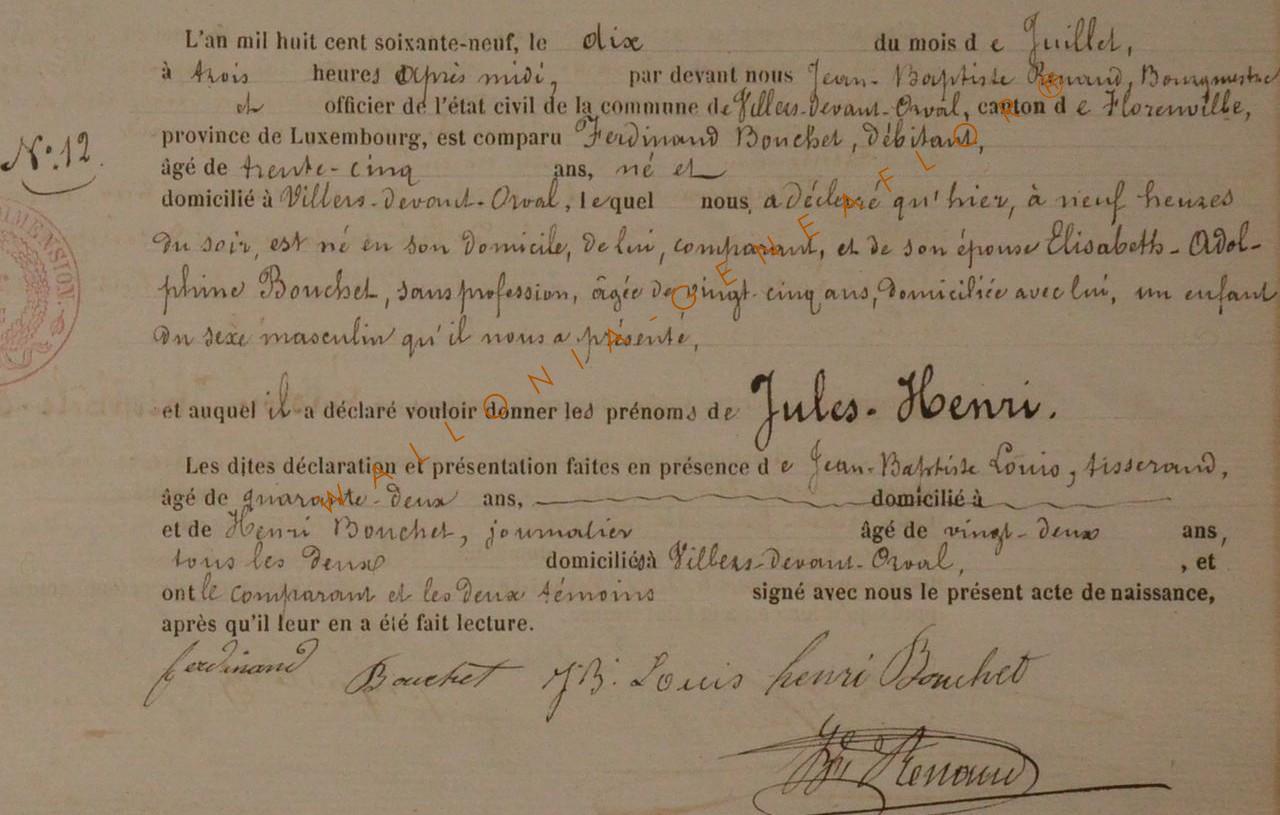 L'an mil huit cent soixante-neuf, le dix du mois d e Juillet,
à trois heures après midi, par devant nous Jean-Baptiste Renaud, Bourgmestre
et officier de l'état civil de la commune de Villers-devant-Orval, canton d e Florenville,
province de Luxembourg, est comparu Ferdinand Bouchet, débitant,
N°. 12.
âgé de trente-cinq ans, né et
domicilié à Villers-devant-Orval, lequel nous a déclaré qu'hier, à neuf heures
du soir, est né en son domicile, de lui, comparant, et de son épouse Elisabeth-Adol-
phine Bouchet, sans profession, âgée de vingt-cinq ans, domiciliée avec lui, un enfant
du sexe masculin qu'il nous a présenté,
et auquel il a déclaré vouloir donner les prénoms de Jules-Henri.
Les dites déclaration et présentation faites en présence d e Jean-Baptiste Louis, tisserand,
âgé de quarante-deux ans, domicilié à
et de Henri Bouchet, journalier âgé de vingt-deux ans,
tous les deux domiciliés à Villers-devant-Orval, , et
ont le comparant et les deux témoins signé avec nous le présent acte de naissance,
après qu'il leur en a été fait lecture.
ferdinand Bouchet J.B. Louis henri Bouchet
Renaud
DIMENSION
WALLONIA-GENEAFLOR®